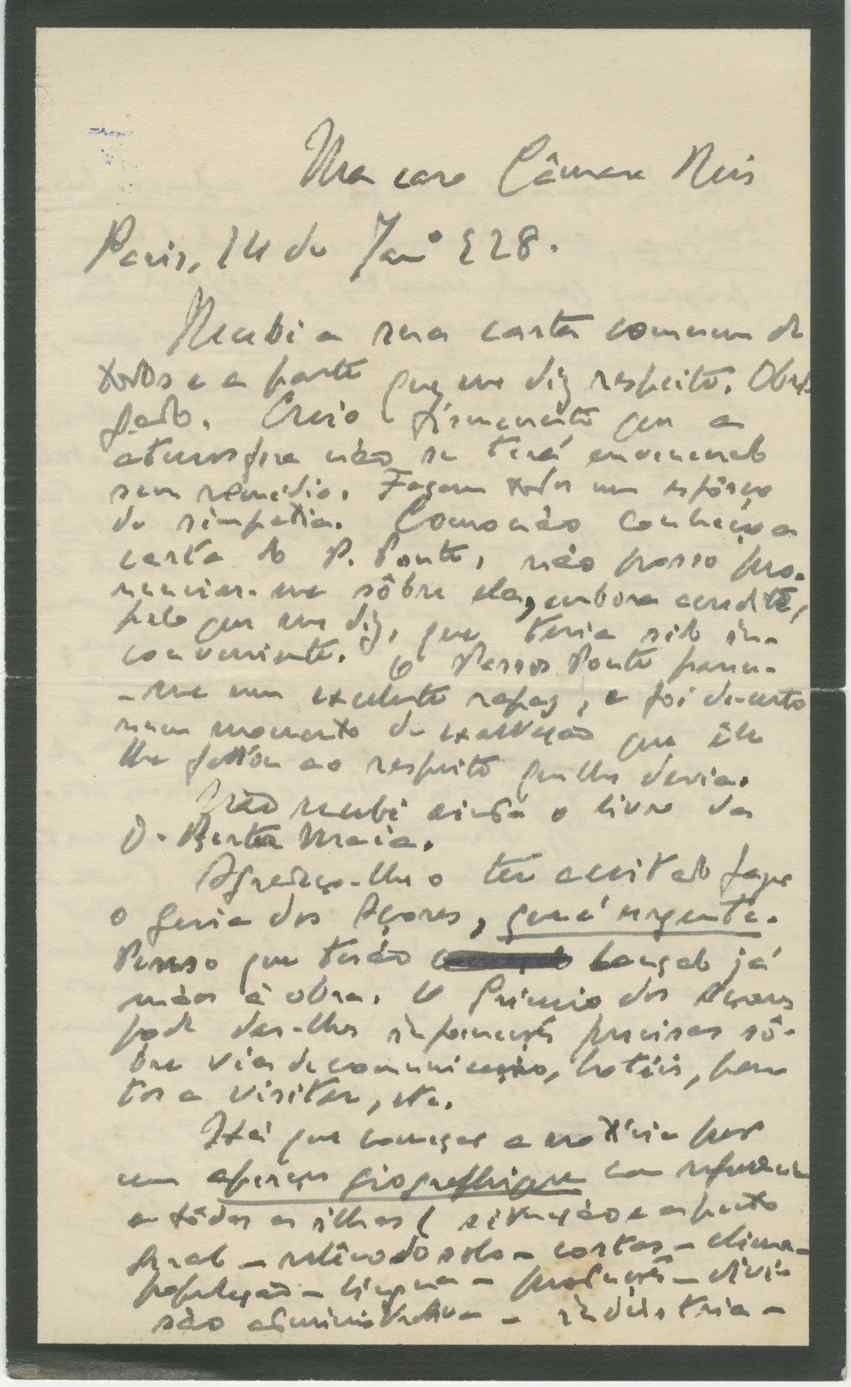 Meu caro Câmara Reis
Paris, 24 de Jan.º 928.
Recebi a sua carta comum de
todos e a parte que me diz respeito. Obri-
gado. Creio firmemente que a
atmosfera não se terá envenenado
sem remédio. Façam todos um esfôrço
de simpatia. Como não conheço a
carta do P. Ponte, não posso pro-
nunciar-me sôbre ela, embora acredite,
pelo que me diz, que teria sido in-
conveniente. O Passos Ponte parece-
-me um excelente rapaz, e foi de-certo
num momento de exaltação que êle
lhe faltou ao respeito que lhe devia.
Não recebi ainda o livro da
D. Berta Maia.
Agradeço-lhe o ter aceitado fazer
o guia dos Açores, que é urgente.
Penso que terão lançado já
mãos à obra. O Grémio dos Açores
pode dar-lhes informações precisas sô-
bre vias de comunicação, hotéis, pon
tos a visitar, etc.
Há que começar a notícia por
um aperçu géographique com referência
a tôdas as ilhas (situação e aspecto
geral - relêvo do solo - costas - clima -
população - língua - produções - divi
são administrativa - indústria -